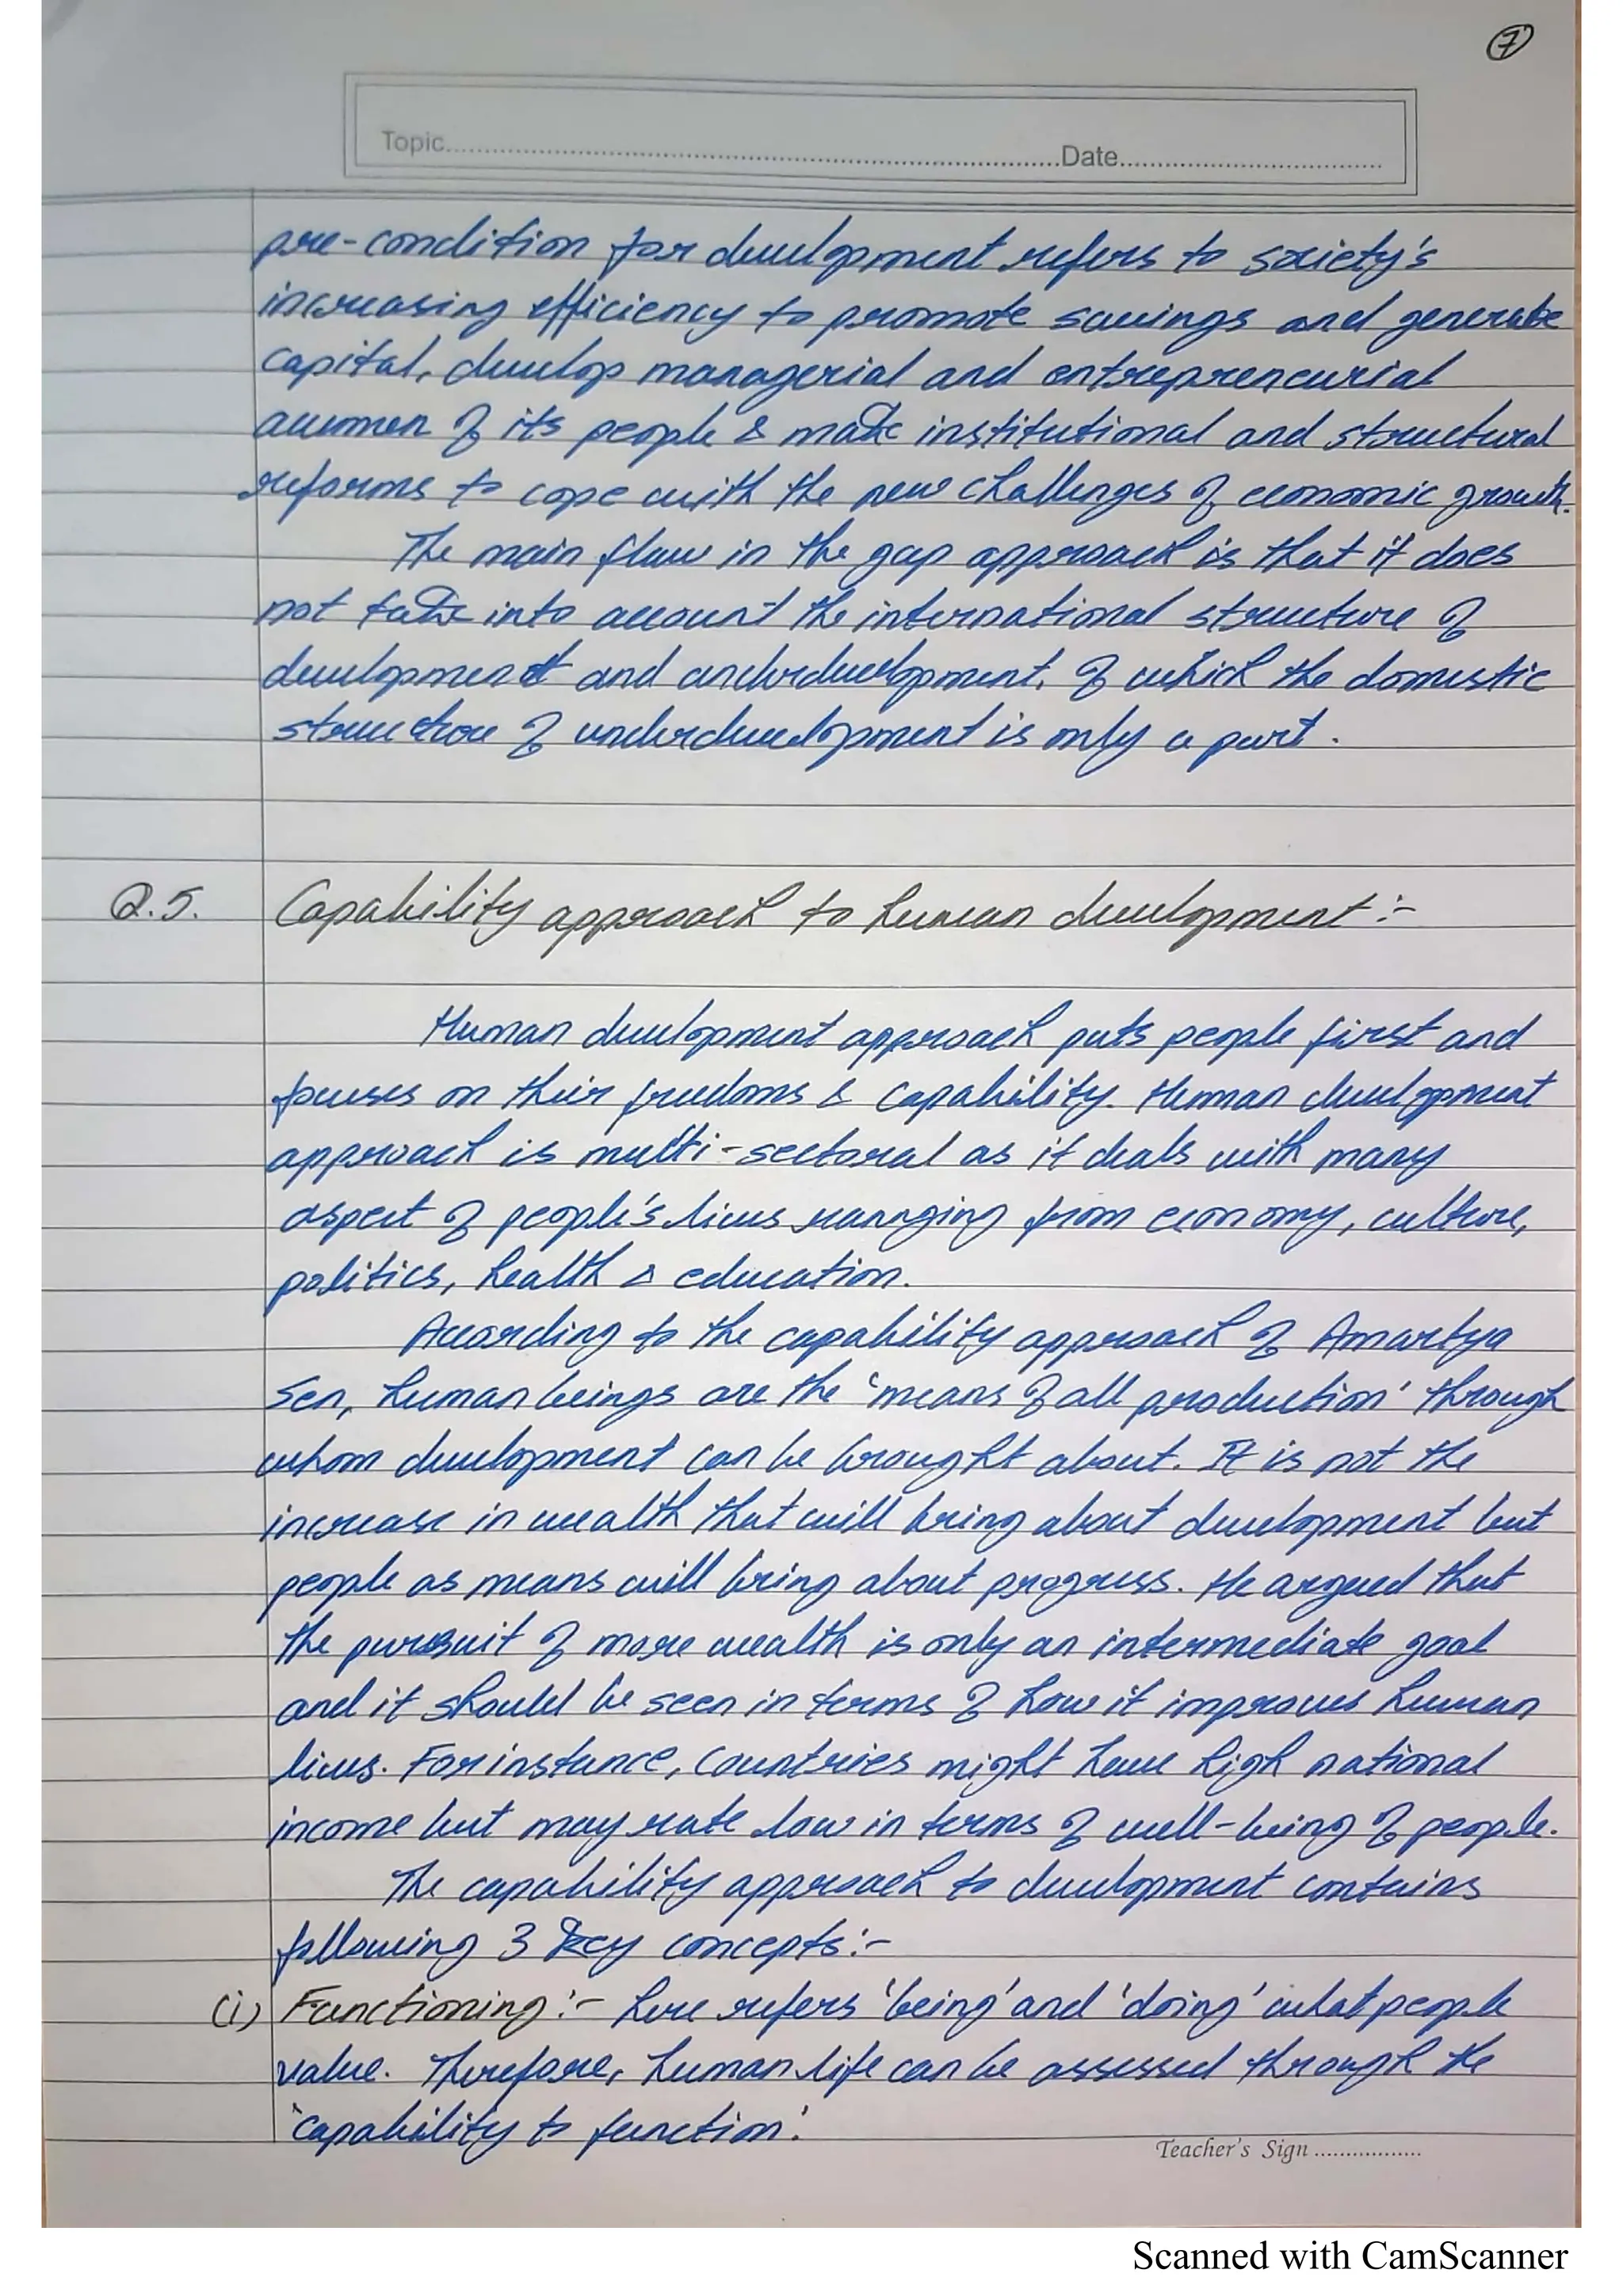 7
Topic..........Date..........
pre-condition for development refers to society's
increasing efficiency to promote savings and generate
capital, develop managerial and entrepreneurial
acumen of its people & make institutional and structural
reforms to cope with the new challenges of economic growth.
The main flaw in the gap approach is that it does
not take into account the international structure of
development and underdevelopment, of which the domestic
structure of underdevelopment is only a part.
Q.5. Capability approach to human development :-
Human development approach puts people first and
focuses on their freedoms & capability. Human development
approach is multi-sectoral as it deals with many
aspect of people's lives rannging from economy, culture,
politics, health & education.
According to the capability approach of Amartya
Sen, human beings are the 'means of all production' through
whom development can be brought about. It is not the
increase in wealth that will bring about development but
people as means will bring about progress. He argued that
the pursuit of more wealth is only an intermediate goal
and it should be seen in terms of how it improves human
lives. For instance, countries might have high national
income but may rate low in terms of well-being of people.
The capability approach to development contains
following 3 key concepts :-
(i) Functioning :- here refers 'being' and 'doing' what people
value. Therefore, human life can be assessed through the
'capability to function'.
Teacher's Sign ..................
Scanned with CamScanner